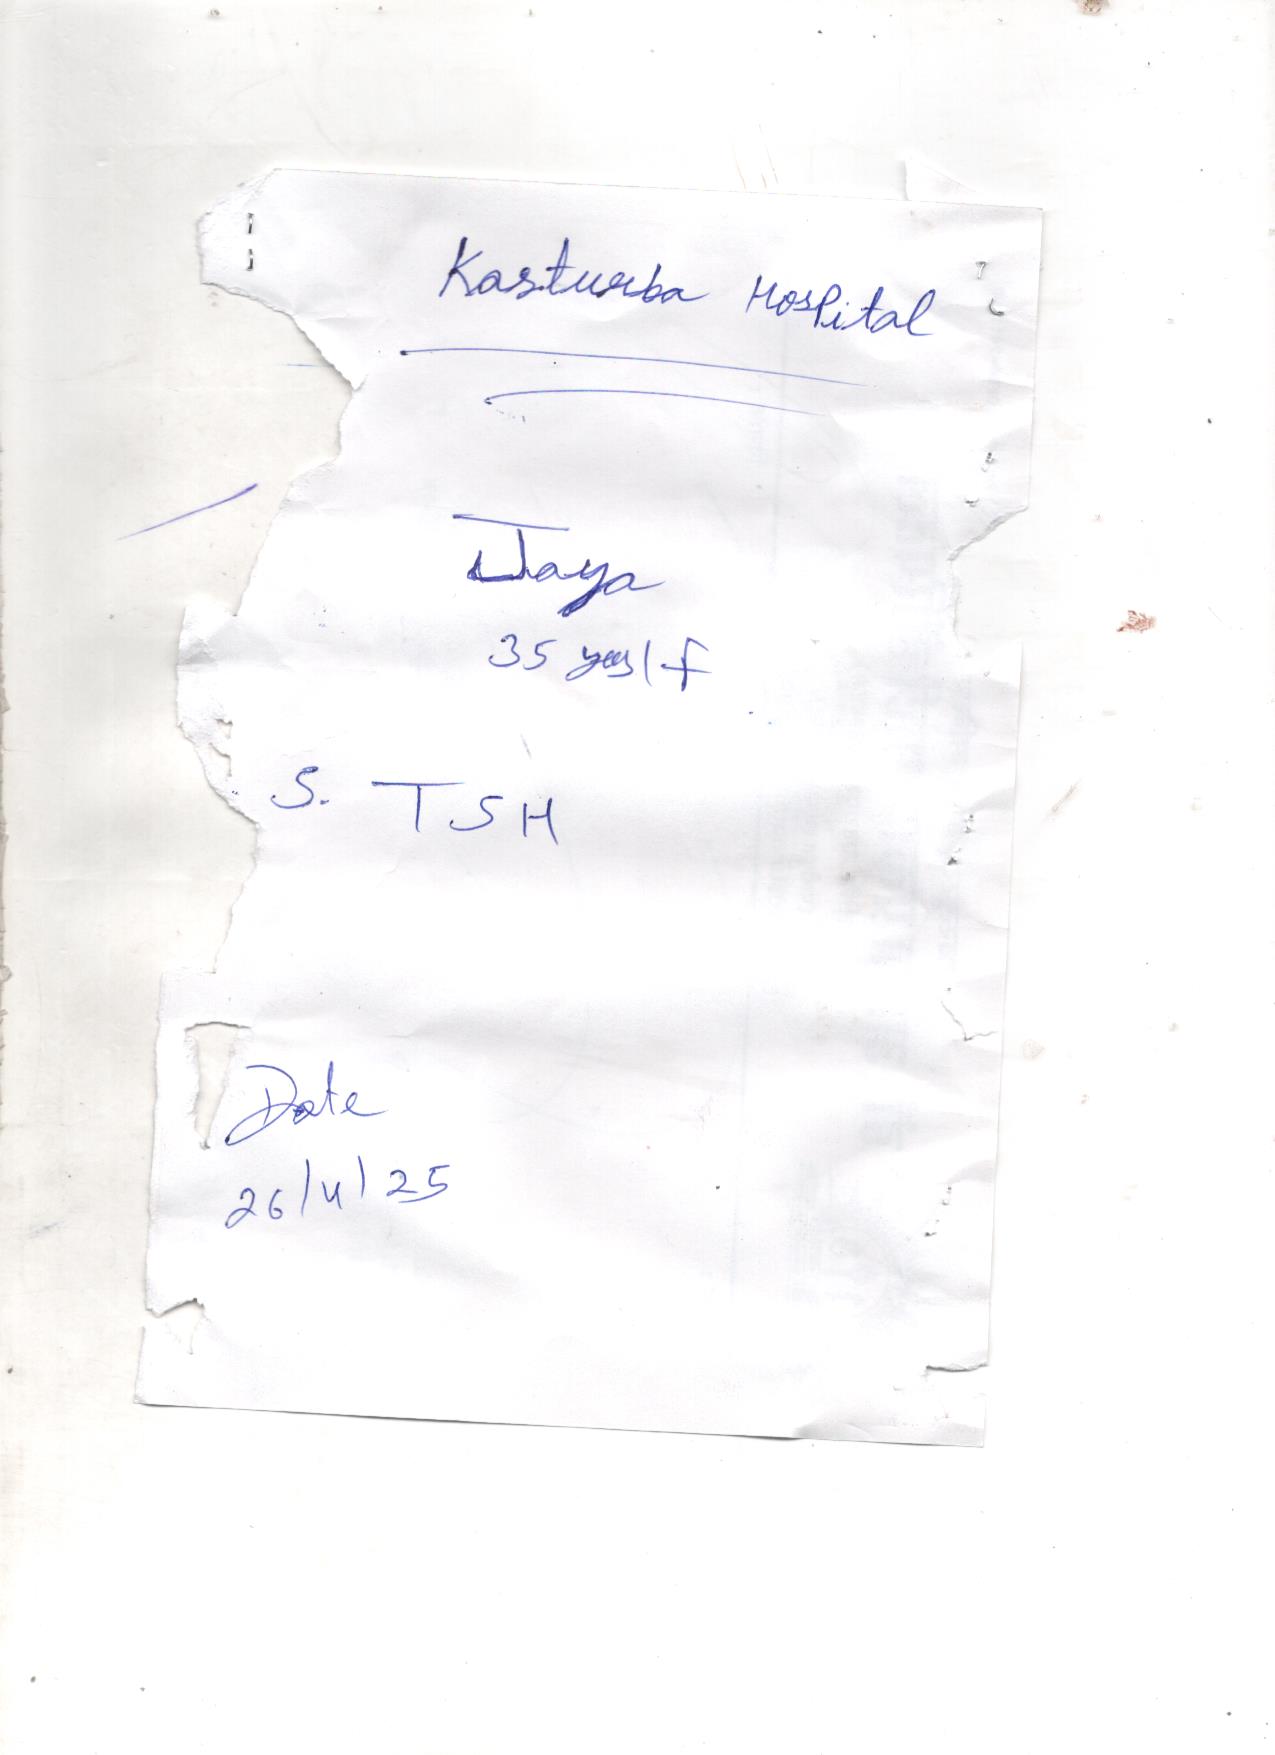 Kasturba Hospital
Jaya
35 yrs/f
S. TSH
Date
26/4/25